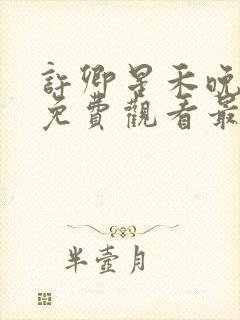 許卿星禾晚
免費觀看最
半壺月